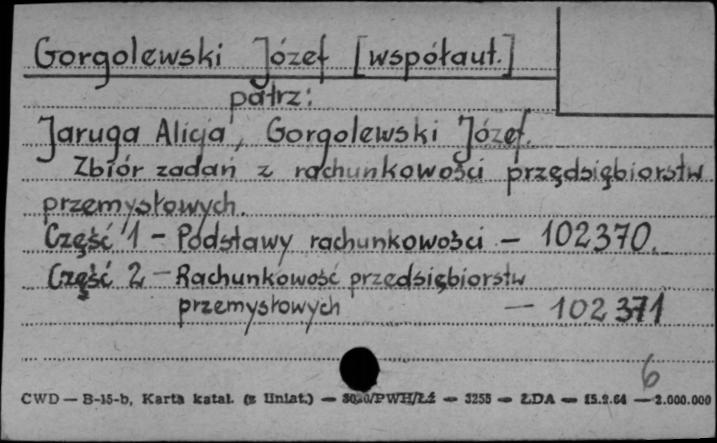 Gorgolewski Józef [współaut.]
patrz:
Jaruga Alicja, Gorgolewski Józef.
Zbiór zadań z rachunkowości przędsiębiorstw
przemysłowych.
Część 1 - Podstawy rachunkowości - 102370.
Część 2 - Rachunkowość przedsiębiorstw
przemysłowych - 102371
6
CWD — B-15-b, Karta katal. (z liniat.) — /PWH/Łż — 3255 — ŁDA — 15.2.64 — 2.000.000